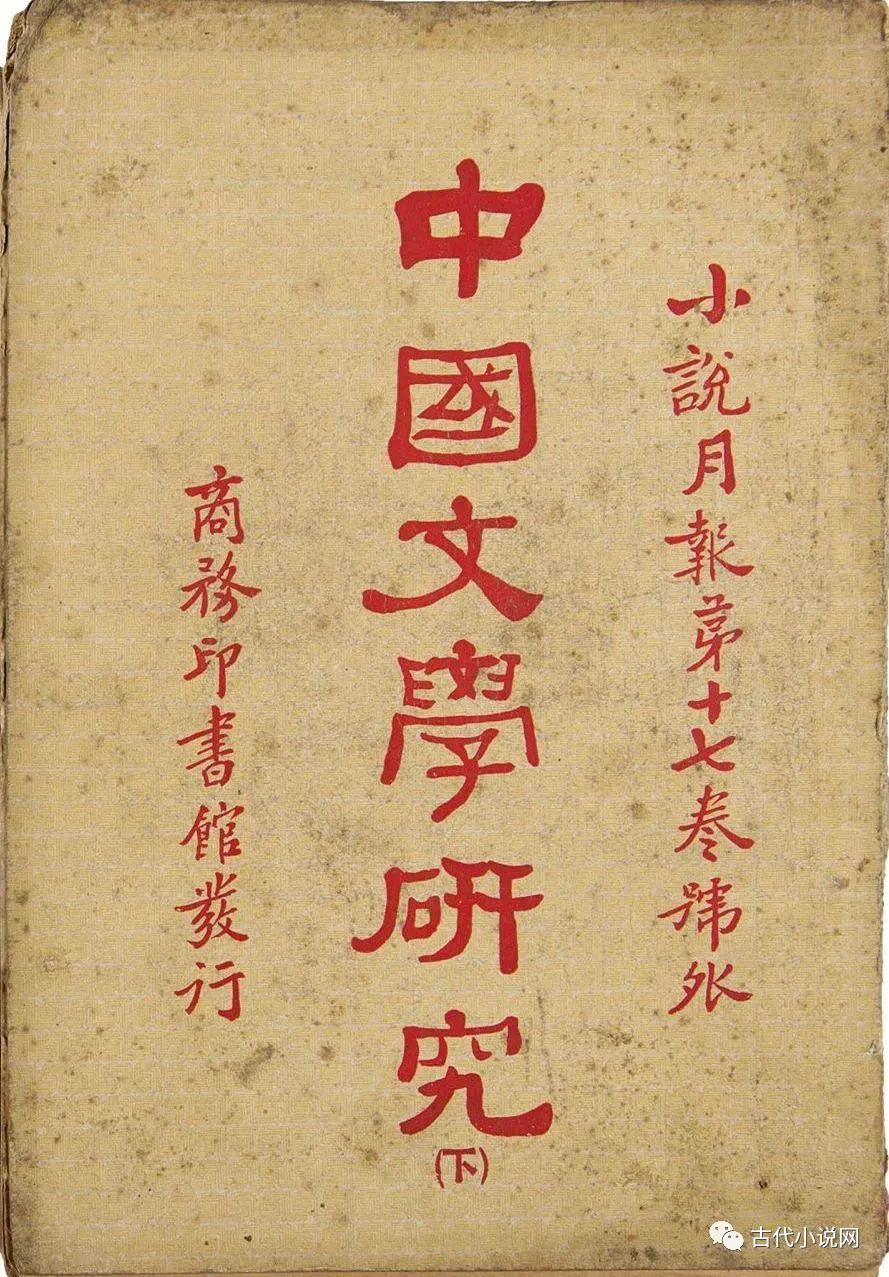 小說月報第十七卷號外
中國文學研究
(下)
商務印書館發行
古代小说网